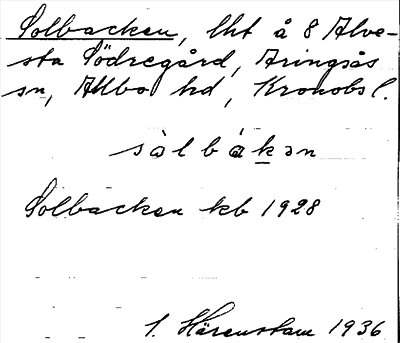 Solbacken, lht å 8 Alve-
sta Södregård, Aringsås
sn, Allbo hd, Kronobs l.
sòlbákən
Solbacken kb 1928
S. Härenstam 1936